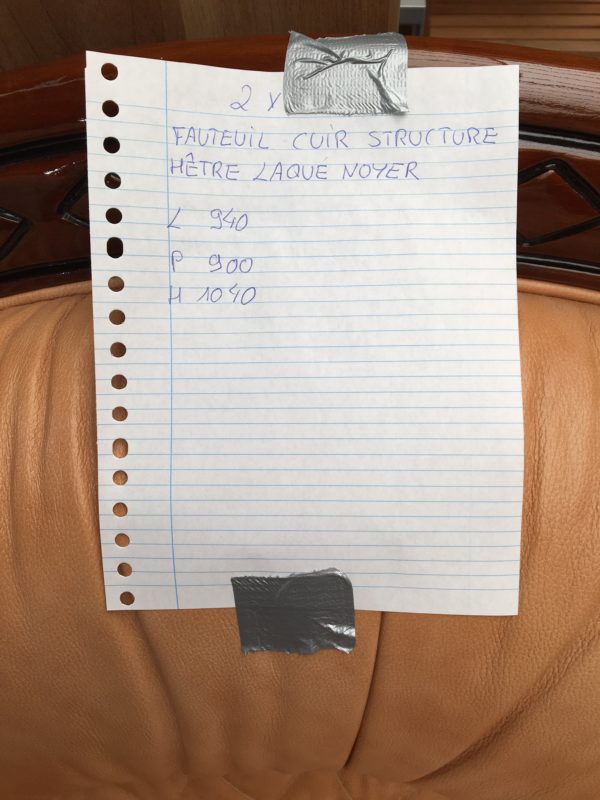 2 x
FAUTEUIL CUIR STRUCTURE
HÊTRE LAQUÉ NOYER
L 940
P 900
H 1040